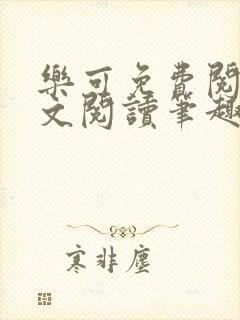 樂可免費閱
文閱讀筆趣
寒非塵